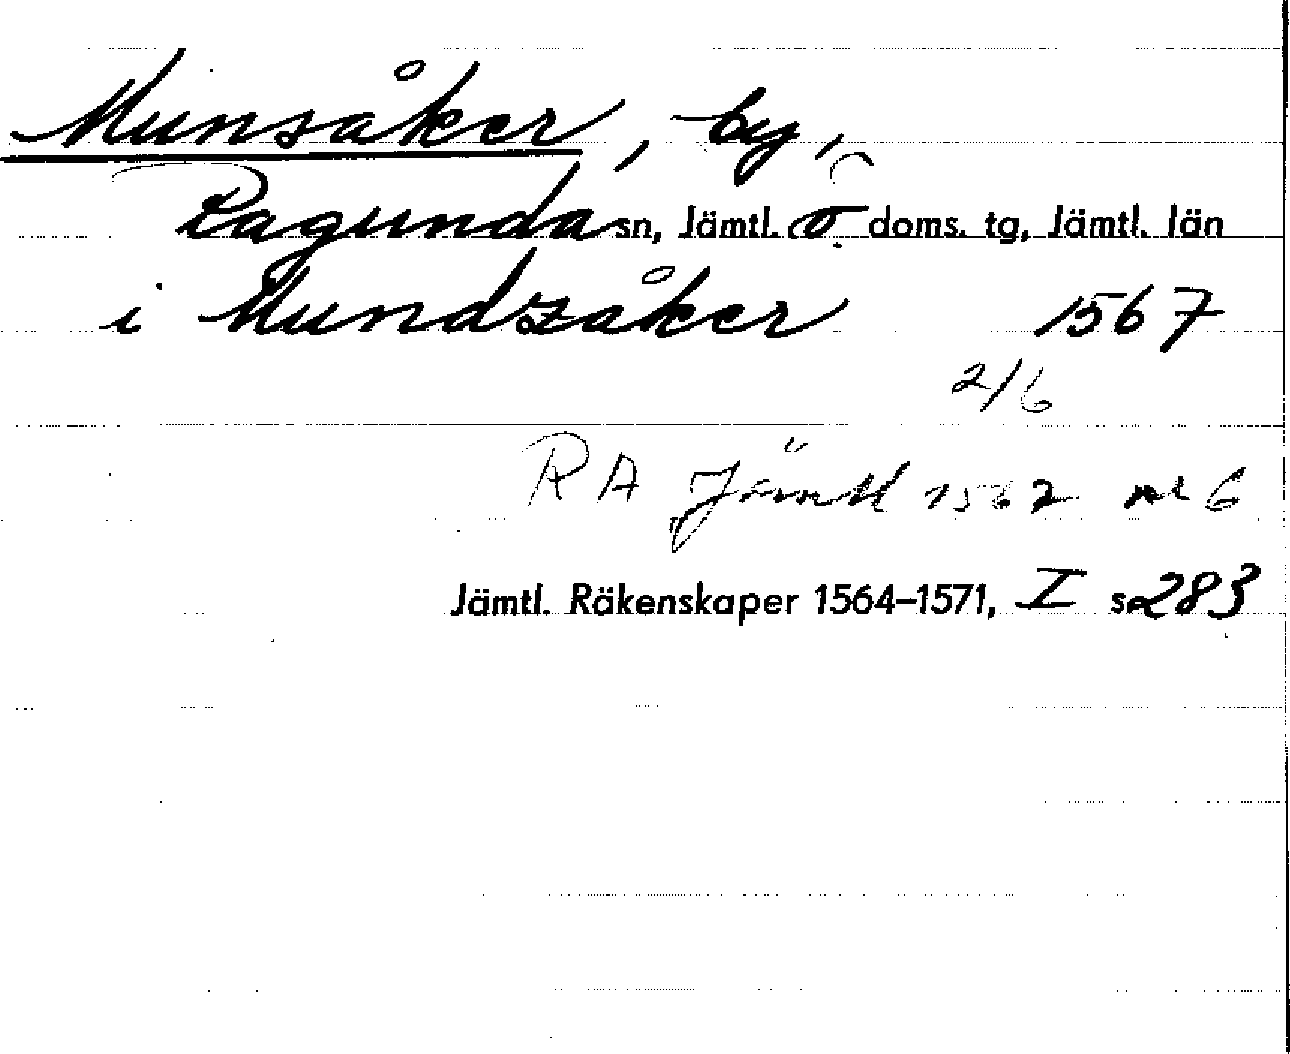 Munsåker, by,
Ragunda sn, Jämtl. ö. doms. tg, Jämtl. län
i Mundzåker 1567
2/6
RA Jämtl 1567 nr 6
Jämtl. Räkenskaper 1564–1571, I s. 283